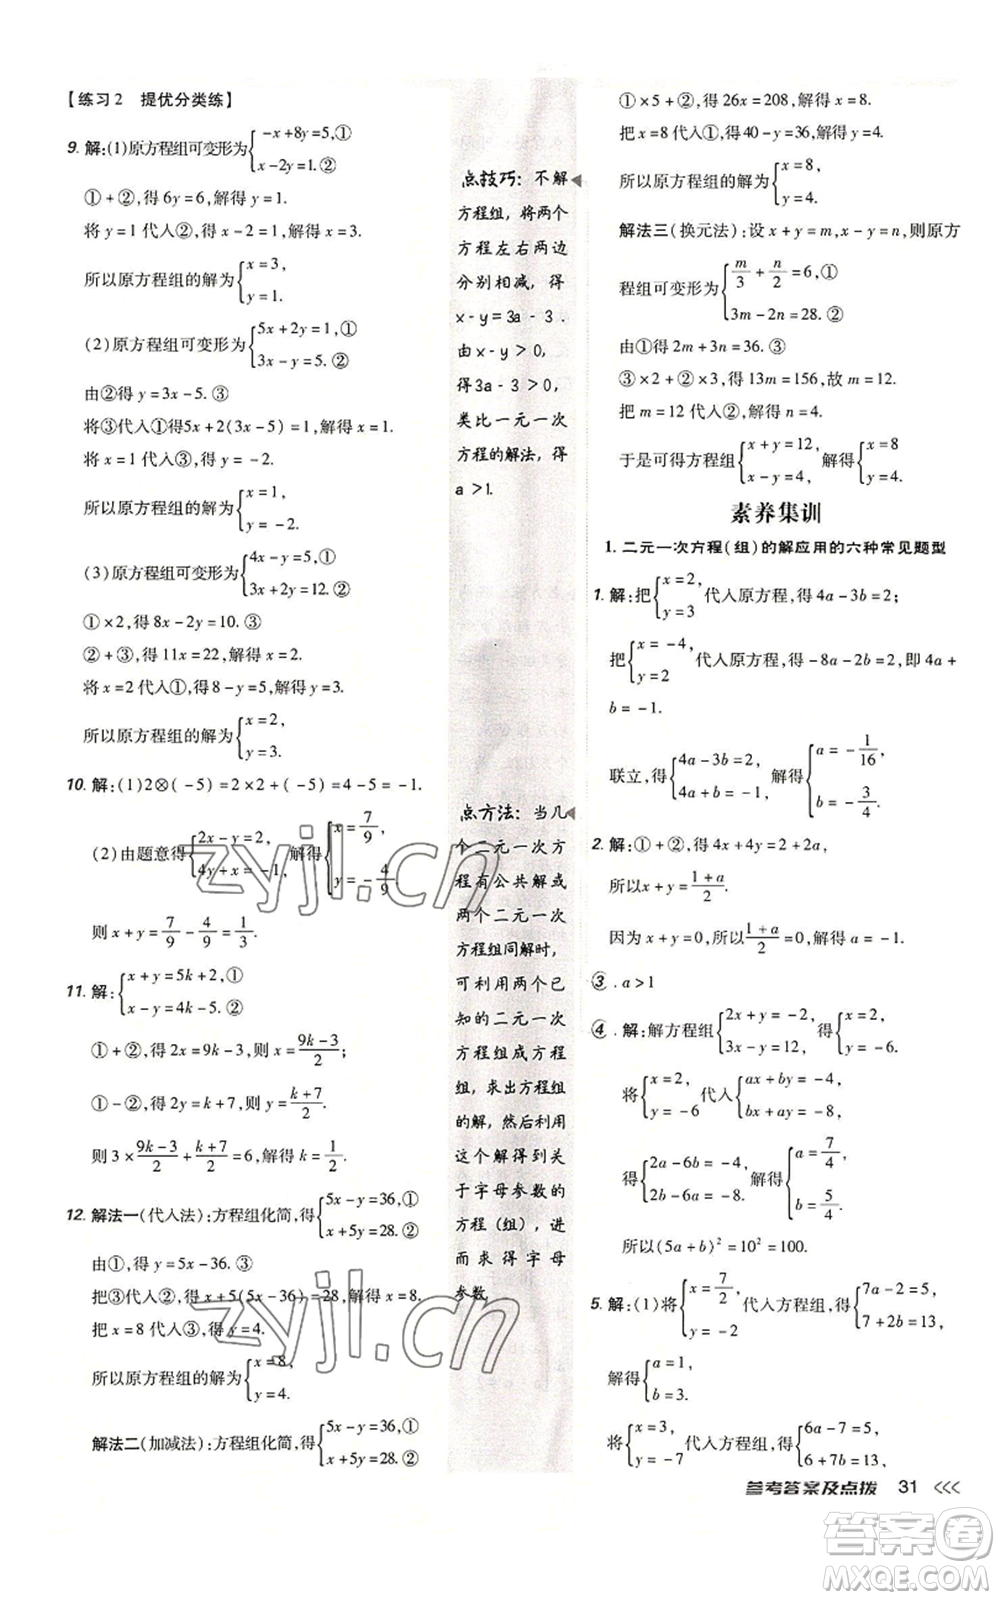 【练习2　提优分类练】
9. 解:(1)原方程组可变形为{-x+8y=5,①
x-2y=1.②
①+②,得 6y=6,解得 y=1.
将 y=1 代入②,得 x-2=1,解得 x=3.
所以原方程组的解为{x=3,
y=1.
(2)原方程组可变形为{5x+2y=1,①
3x-y=5.②
由②得 y=3x-5.③
将③代入①得5x+2(3x-5)=1,解得 x=1.
将 x=1 代入③,得 y=-2.
所以原方程组的解为{x=1,
y=-2.
(3)原方程组可变形为{4x-y=5,①
3x+2y=12.②
①×2,得 8x-2y=10.③
②+③,得 11x=22,解得 x=2.
将 x=2 代入①,得 8-y=5,解得 y=3.
所以原方程组的解为{x=2,
y=3.
10. 解:(1)2⊗(-5)=2×2+(-5)=4-5=-1.
(2)由题意得{2x-y=2,
4y+x=-1,
解得{x=7/9,
y=-4/9
则 x+y=7/9-4/9=1/3.
11. 解:{x+y=5k+2,①
x-y=4k-5.②
①+②,得 2x=9k-3,则 x=(9k-3)/2;
①-②,得 2y=k+7,则 y=(k+7)/2.
则 3×(9k-3)/2+(k+7)/2=6,解得 k=1/2.
12. 解法一(代入法):方程组化简,得{5x-y=36,①
x+5y=28.②
由①,得 y=5x-36.③
把③代入②,得 x+5(5x-36)=28,解得 x=8.
把 x=8 代入③,得 y=4.
所以原方程组的解为{x=8,
y=4.
解法二(加减法):方程组化简,得{5x-y=36,①
x+5y=28.②
点技巧：不解
方程组,将两个
方程左右两边
分别相减,得
x-y=3a-3.
由 x-y>0,
得3a-3>0,
类比一元一次
方程的解法,得
a>1.
点方法：当几
个二元一次方
程有公共解或
两个二元一次
方程组同解时,
可利用两个已
知的二元一次
方程组成方程
组,求出方程组
的解,然后利用
这个解得到关
于字母参数的
方程(组),进
而求得字母
参数
①×5+②,得 26x=208,解得 x=8.
把 x=8 代入①,得 40-y=36,解得 y=4.
所以原方程组的解为{x=8,
y=4.
解法三(换元法):设 x+y=m,x-y=n,则原方
程组可变形为{m/3+n/2=6,①
3m-2n=28.②
由①得 2m+3n=36.③
③×2+②×3,得 13m=156,故 m=12.
把 m=12 代入②,解得 n=4.
于是可得方程组{x+y=12,
x-y=4,
解得{x=8
y=4.
素养集训
1. 二元一次方程(组)的解应用的六种常见题型
1. 解:把{x=2,
y=3
代入原方程,得 4a-3b=2;
把{x=-4,
y=2
代入原方程,得 -8a-2b=2,即 4a+
b=-1.
联立,得{4a-3b=2,
4a+b=-1,
解得{a=-1/16
b=-3/4
2. 解:①+②,得 4x+4y=2+2a,
所以x+y=(1+a)/2.
因为 x+y=0,所以(1+a)/2=0,解得 a=-1.
3. a>1
4. 解:解方程组{2x+y=-2,
3x-y=12,
得{x=2,
y=-6.
将{x=2,
y=-6
代入{ax+by=-4,
bx+ay=-8,
得{2a-6b=-4,
2b-6a=-8.
解得{a=7/4,
b=5/4
所以(5a+b)²=10²=100.
5. 解:(1)将{x=7/2,
y=-2
代入方程组,得{7a-2b=1,
7+2b=13,
解得{a=1,
b=3.
将{x=3,
y=-7
代入方程组,得{6a-7=5,
6+7b=13,
参考答案及点拨　31
zyjl.cn
zyjl.cn
答案卷
MXQE.COM